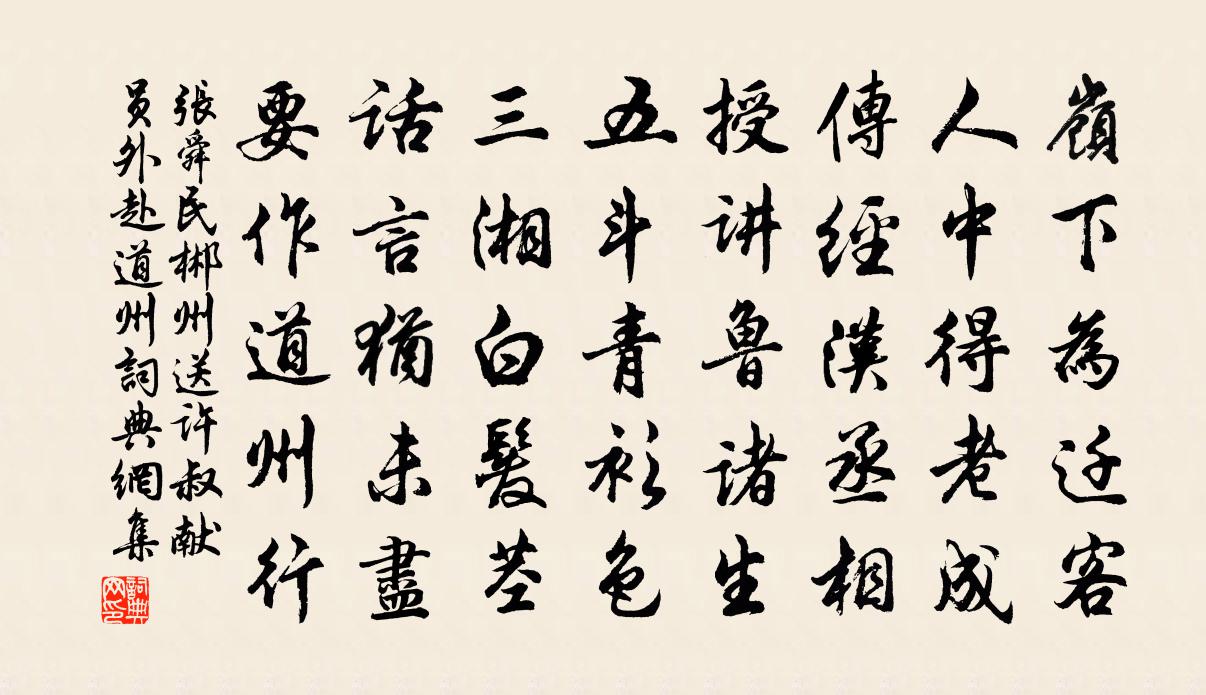 嶺下為迁客
人中得老成
傳經漢丞相
授讲鲁諸生
五斗青衫色
三湘白髮茎
話言猶未盡
要作道州行
張舜民郴州送许叔献
员外赴道州詞典網集
詞典網印